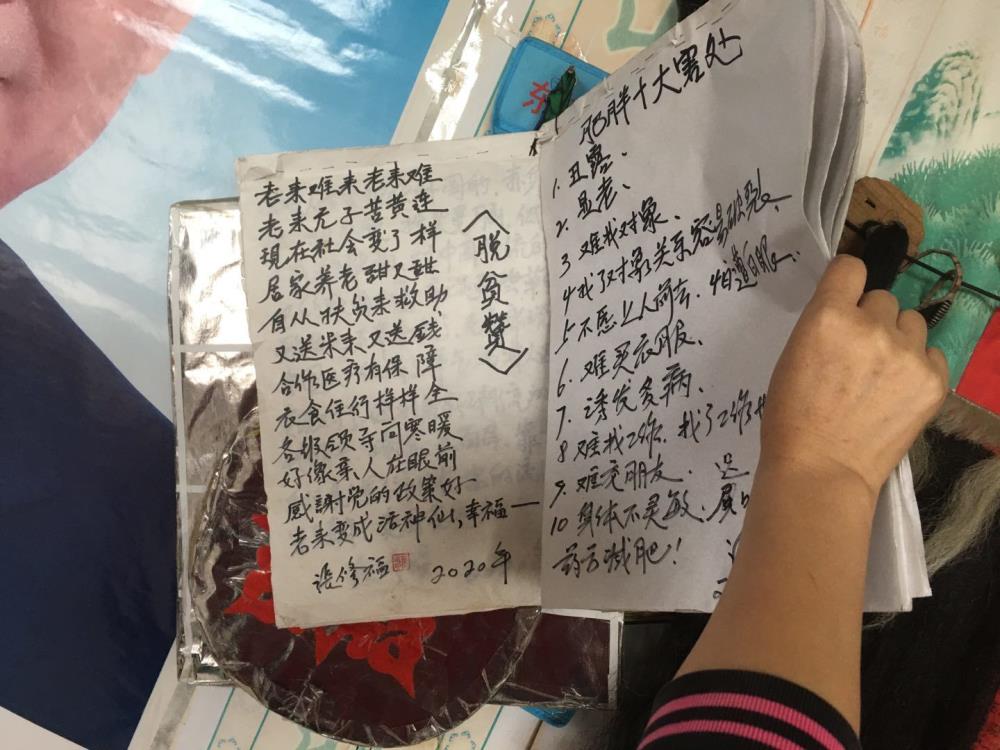 〈脱贫赞〉
老来难来老来难
老来无子苦黄连
現在社会变了样
居家养老甜又甜
自从扶贫来救助
又送米来又送钱
合作医疗有保障
衣食住行样样全
各级领导问寒暖
好像亲人在眼前
感謝党的政策好
老来变成活神仙,幸福一
張修福
2020年
肥胖十大害处
1. 丑露、
2. 显老、
3 难找对象、
4 找了对象关系容易破裂、
5 不愿上人前去、怕遭
6. 难买衣服、
7. 诱发多病、
8 难找工作、找了工作
9. 难充朋友、
10 身体不灵敏、
减肥!
东